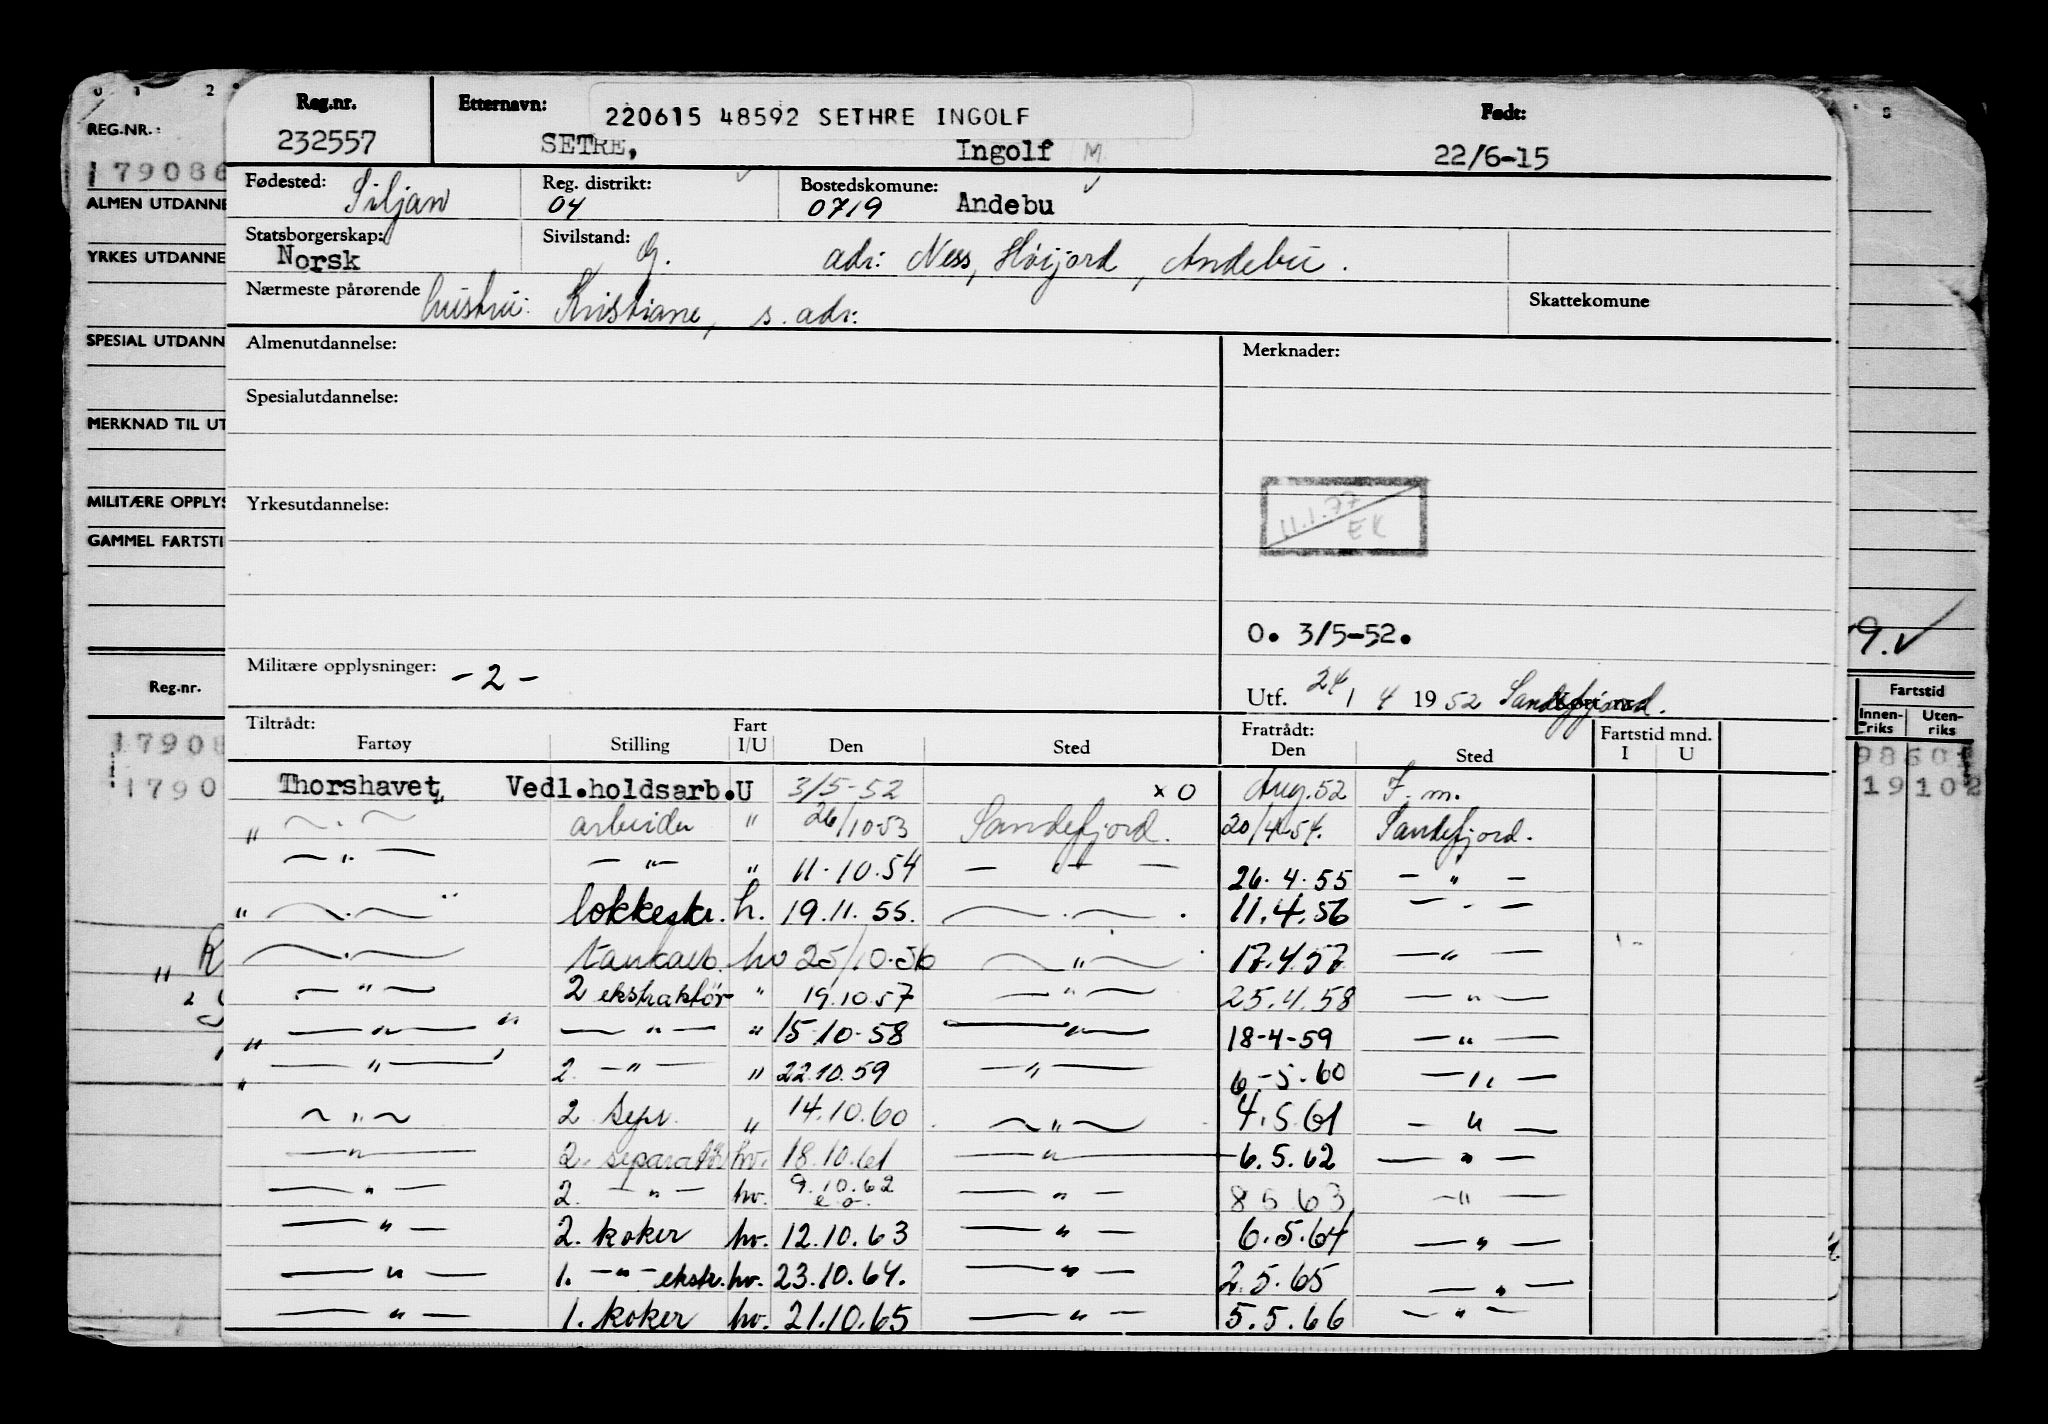 Reg.nr. Etternavn: 220615 48592 SETHRE INGOLF Født:
232557 SETRE, Ingolf M 22/6-15
Fødested: Siljan Reg. distrikt: 04 Bostedskomune: 0719 Andebu
Statsborgerskap: Norsk Sivilstand: G. adr: Ness, Høijord, Andebu.
Nærmeste pårørende hustru: Kristiane, s. adr. Skattekomune
Almenutdannelse: Merknader:
Spesialutdannelse:
Yrkesutdannelse: 11.1.77 EK
O. 3/5-52.
Militære opplysninger: - 2 - Utf. 24/4 1952 Sandefjord.
Tiltrådt: Fratrådt: Fartstid mnd.
Fartøy Stilling Fart I/U Den Sted Den Sted I U
Thorshavet Vedl.holdsarb. U 3/5-52 x O Aug. 52 F. m.
" — " — arbeider " 26/10 53 Sandefjord. 20/4-54. Sandefjord.
— " — — " — " 11.10.54 — " — 26.4.55 — " —
" — " — " kokkeskr. h. 19.11.55. — " — 11.4.56 — " —
— " — tankarb. hv 25/10.56 — " — 17.4.57 — " —
— " — 2 ekstraktør " 19.10.57 — " — 25.4.58 — " —
" — " — " — " — " 15-10-58 — " — 18-4-59 — " —
" — " — 2. — " — " 22.10.59 — " — 6-5-60 — " —
— " — 2 sepr. " 14.10.60 — " — 4.5.61 — " —
— " — 2. separatør hv. 18.10.61 — " — 6.5.62 — " —
— " — 2. — " — hv. 9.10.62 e.o. — " — 8 5 63 — " —
— " — 2. koker hv. 12.10.63 — " — 6.5.64 — " —
— " — 1. — " — ekstr. hv. 23.10.64. — " — 2.5.65 — " —
— " — 1. koker hv. 21.10.65 — " — 5.5.66 — " —
REG.NR.:
179086
ALMEN UTDANNE
YRKES UTDANNE
SPESIAL UTDANN
MERKNAD TIL UT
MILITÆRE OPPLYS
GAMMEL FARTSTI
Reg.nr.
17908
1790
9.✓
Fartstid
Innenriks Utenriks